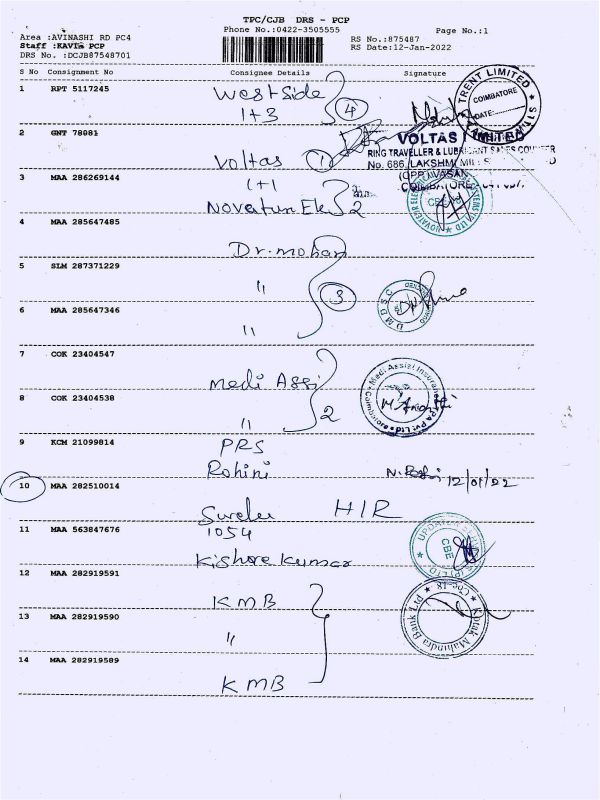 TPC/CJB DRS - PCP
Phone No.:0422-3505555 Page No.:1
Area :AVINASHI RD PC4
Staff :KAVIN PCP
DRS No. :DCJB87548701
RS No.:875487
RS Date:12-Jan-2022
S No Consignment No Consignee Details Signature
1 RPT 5117245 Westside
1+3 4
TRENT LIMITED
COIMBATORE
DATE:
2 GNT 78081 Voltas 1
VOLTAS LIMITED
RING TRAVELLER & LUBRICANT SALES COUNTER
No. 686, LAKSHMI MILLS
3 MAA 286269144 1+1
Novateur Ele 2
CBE-18
4 MAA 285647485 Dr. mohan
5 SLM 287371229 "
3
DMDSC
6 MAA 285647346 "
7 COK 23404547 Medi Assi
Medi Assist Insurance TPA Pvt Ltd
Coimbatore
8 COK 23404538 "
2
9 KCM 21099814 PRS
Rohini
12/01/22
10 MAA 282510014 HIR
11 MAA 563847676 1054
Kishore Kumar
CBE
12 MAA 282919591 KMB
Kotak Mahindra Bank Ltd
Cbe-18
13 MAA 282919590 "
14 MAA 282919589 KMB